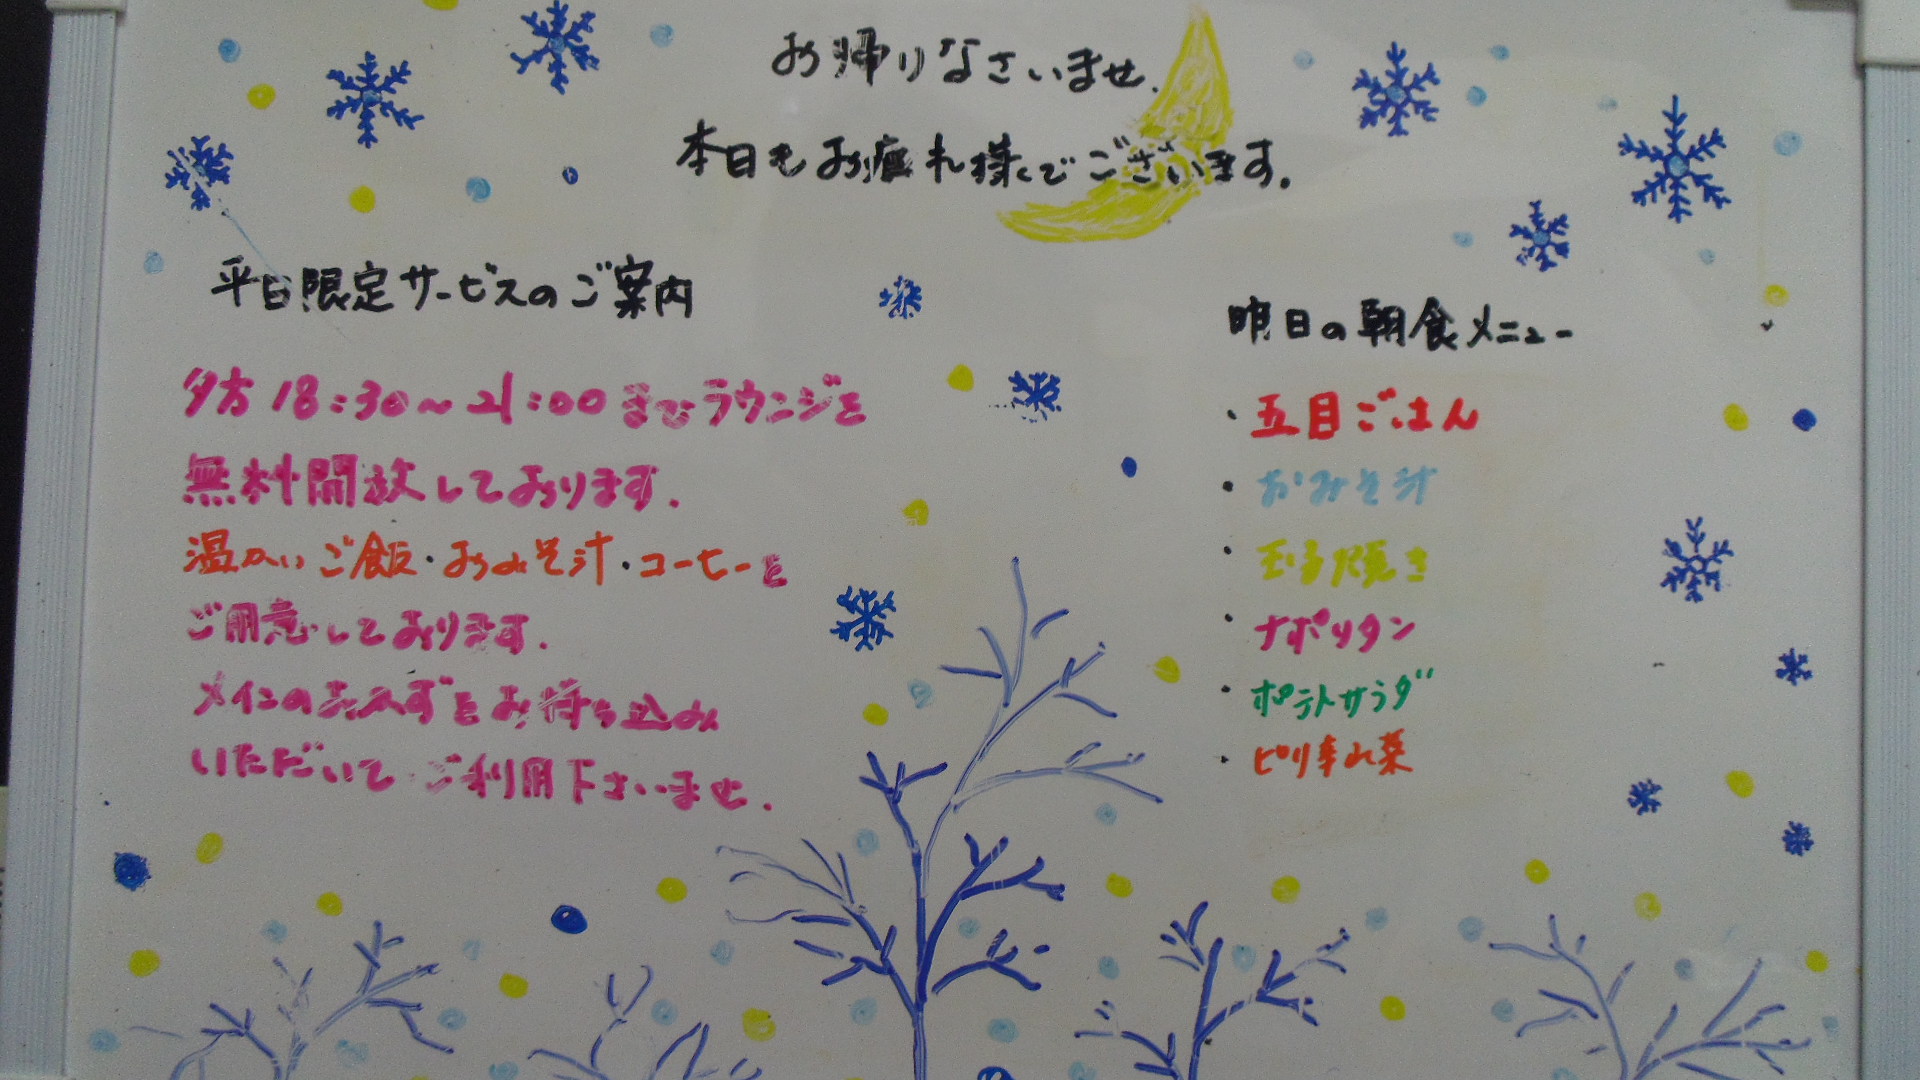 お帰りなさいませ.
本日もお疲れ様でございます.
平日限定サービスのご案内
夕方18:30～21:00までラウンジを
無料開放しております.
温かいご飯・おみそ汁・コーヒーを
ご用意しております.
メインのおかずをお持ち込み
いただいて ご利用下さいませ.
明日の朝食メニュー
・五目ごはん
・おみそ汁
・玉子焼き
・ナポリタン
・ポテトサラダ
・ピリ辛山菜